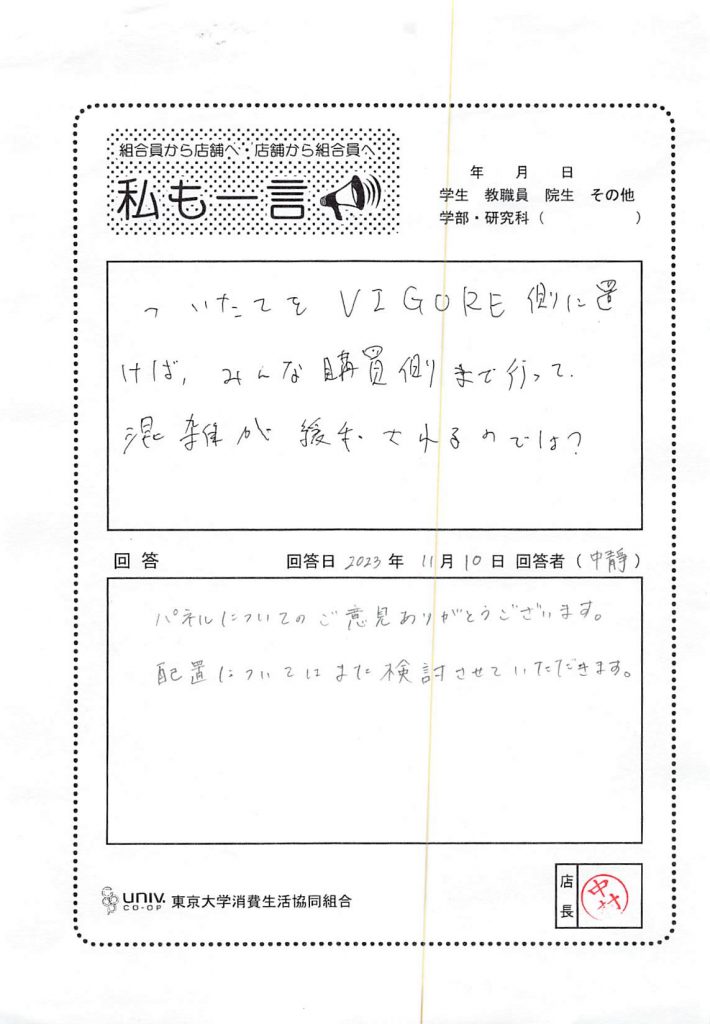 組合員から店舗へ・店舗から組合員へ
私も一言
年 月 日
学生 教職員 院生 その他
学部・研究科( )
ついたてを VIGORE 側に置
けば, みんな購買側まで行って、
混雑が緩和されるのでは?
回答 回答日 2023 年 11 月 10 日 回答者 (中靜)
パネルについてのご意見ありがとうございます。
配置についてはまた検討させていただきます。
UNIV. CO-OP 東京大学消費生活協同組合
店長
中村